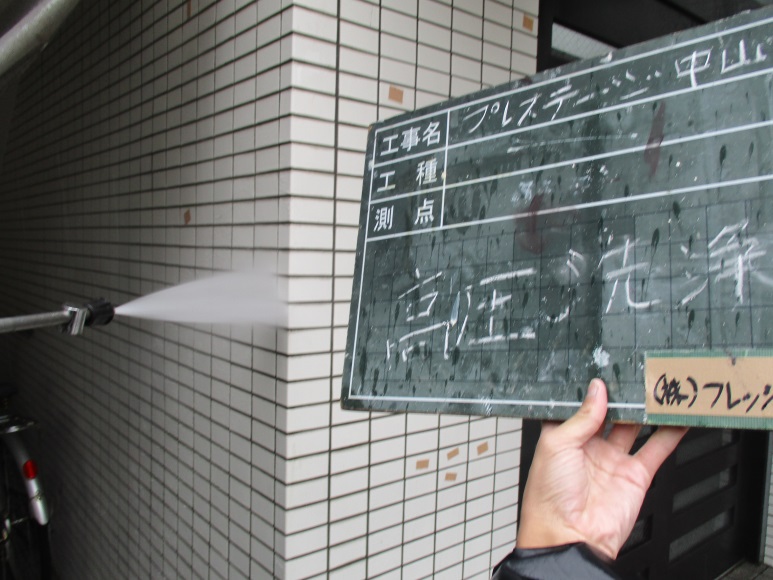 工事名 プレステージ中山
工種
測点
高圧洗浄
(株)フレッシ